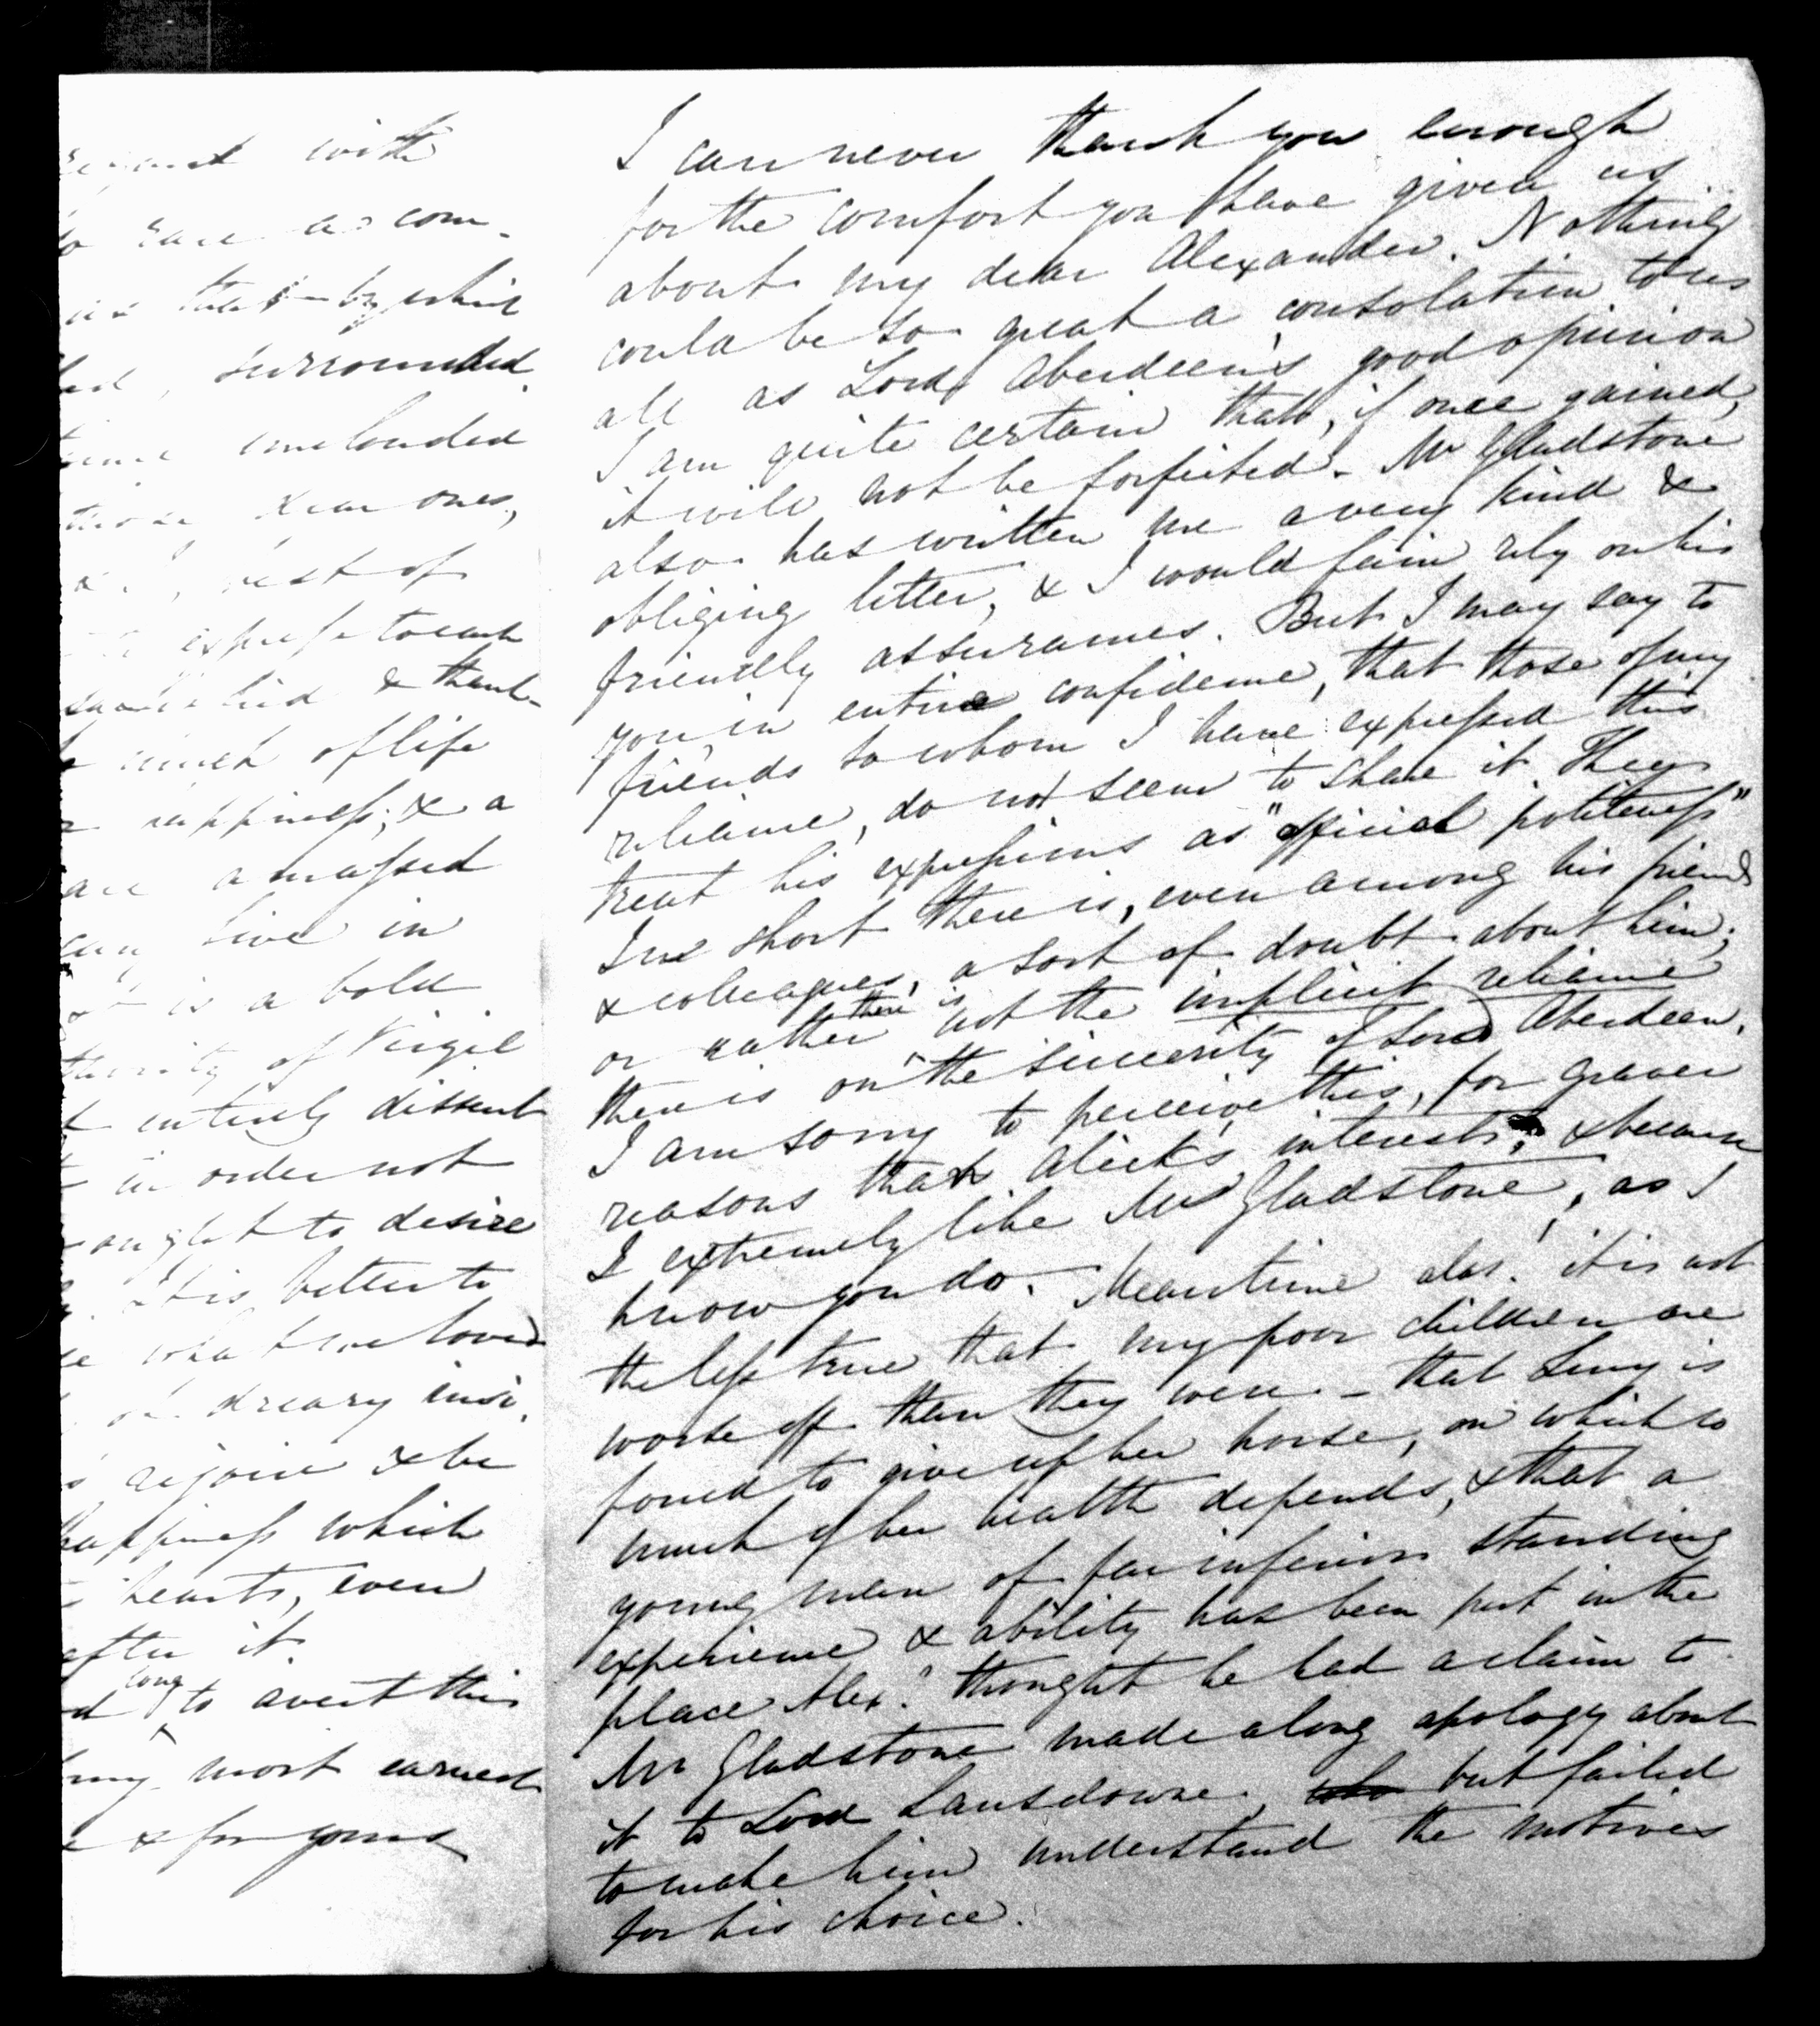 with
a com-
surrounded
clouded
dear ones,
rest of
express to each
& thank-
much of life
happiness; & a
are amassed
can live in
it is a bold
of Virgil
entirely dissent
in order not
ought to desire
It is better to
what we loved
dreary
rejoice & be
happiness which
hearts, even
after it.
long
to avert this
my most earnest
& for yours
I can never thank you enough
for the comfort you have given us
about my dear Alexander. Nothing
could be so great a consolation to us
all as Lord Aberdeen's good opinion
I am quite certain that, if once gained,
it will not be forfeited. Mr Gladstone
also has written me a very kind &
obliging letter, & I would fain rely on his
friendly assurances. But I may say to
you, in entire confidence, that those of my
friends to whom I have expressed this
reliance, do not seem to share it. They
treat his expressions as "official politeness"
In short there is, even among his friends
& colleagues, a sort of doubt about him;
or rather there is not the implicit reliance
there is on the sincerity of Lord Aberdeen.
I am sorry to perceive this, for graver
reasons than Alick's interests, & because
I extremely like Mr Gladstone, as I
know you do. Meantime alas! it is not
the less true that my poor children are
worse off than they were – that Lucy is
forced to give up her horse, on which so
much of her health depends, & that a
young man of far inferior standing
experience & ability has been put in the
place Alexr. thought he had a claim to.
Mr Gladstone made a long apology about
it to Lord Lansdowne, who but failed
to make him understand the motives
for his choice.